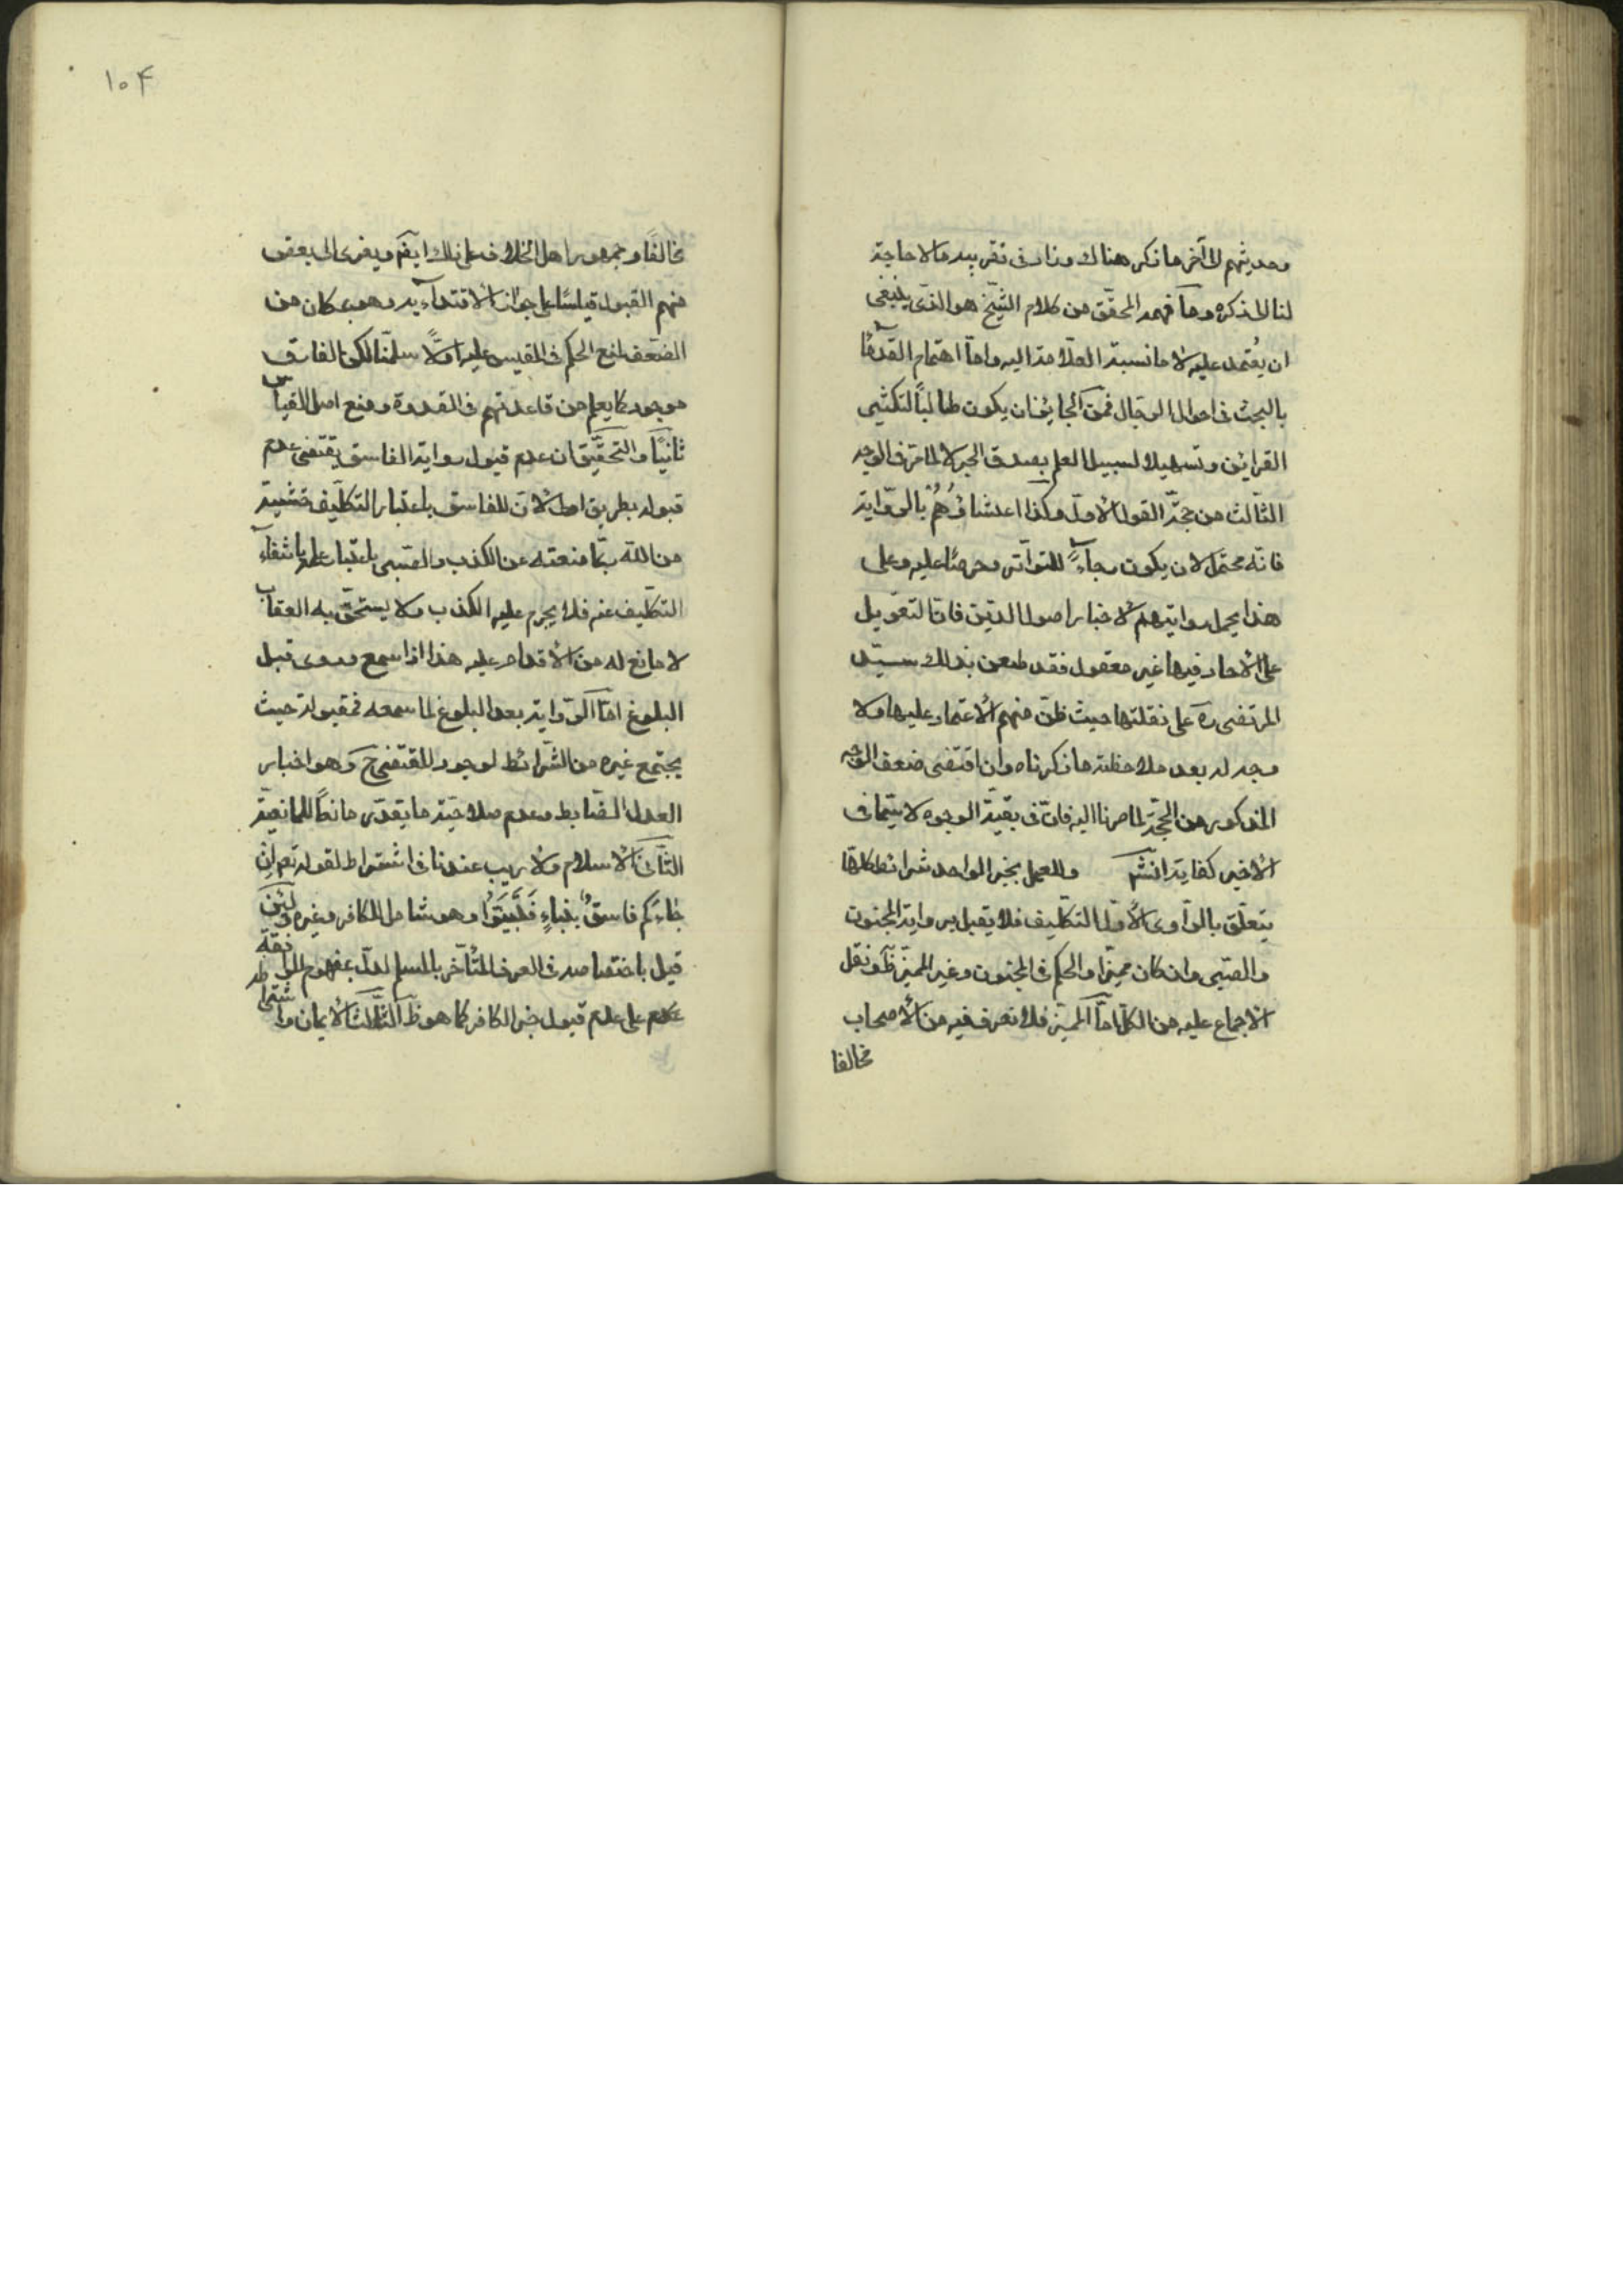 وحديثهم الى آخر ما ذكر هناك وزاد فى تقريبه مالا حاجة
لنا الى ذكره وما فهمه المحقق من كلام الشيخ هو الذى ينبغى
ان يُعتمد عليه لا ما نسبه العلّامة اليه واما اهتمام القدمآء
بالبحث فى احوال الرجال فمن الجائز ان يكون طلباً لتكثير
القرائن وتسهيلا لسبيل العلم بصدق الخبر لا لما مرّ فى الوجه
الثالث من حجّة القول الأول وكذا اعتناؤُهُمْ بالرّواية
فانّه محتمل لان يكون رجآءً للتواتر وحرصًا عليه وعلى
هذا يحمل روايتهم لأخبار اصول الدّين فانّ التعويل
على الآحاد فيها غير معقول فقد طعن بذلك السيّد
المرتضى ره على نقلتها حيث ظنّ منهم الأعتماد عليها ولا
وجه له بعد ملاحظة ما ذكرناه وان اقتضى ضعف الوجه
المذكور من الحجّة لما صرنا اليه فانّ فى بقيّة الوجوه لا سيّما فى
الأخير كفاية انشـ وللعمل بخبر الواحد شرائط كلّها
يتعلّق بالرّاوى الأوّل التكليف فلا يقبل رواية المجنون
والصّبى وان كان مميّزا والحكم فى المجنون وغير المميّز ظَ ونقل
الأجماع عليه من الكل امّا المميّز فلا نعرف فيه من الأصحاب
مخالفا
١٠۴
مخالفًا وجمهور اهل الخلاف على ذلك ايضَ ويعزى الى بعض
منهم القبول قياسًا على جواز الأقتدآء به وهو بمكان من
الضّعف لمنع الحكم فى المقيس عليه اوّلاً سلّمنا لكن الفارق
موجود كما يعلم من قاعدتهم فى القدوة ومنع اصل القياس
ثانيًا والتحقيق ان عدم قبول رواية الفاسق يقتضى عدم
قبوله بطريق اولى لأنّ للفاسق باعتبار التكليف خشية
من اللّه ربّما منعته عن الكذب والصّبى باعتبار علمه بانتفآء
التكليف عنه فلا يحرم عليه الكذب ولا يستحقّ به العقاب
لا مانع له من الأقدام عليه هذا اذا سمع وروى قبل
البلوغ امّا الرّواية بعد البلوغ لما سمعه فمقبولة حيث
يجتمع غيره من الشّرائط لوجود المقتضى حَ وهو اخبار
العدل الضّابط وعدم صلاحيّة ما يقدّر مانعاً للمانعيّة
الثّانى الأسلام ولا ريب عندنا فى اشتراط لقوله تعالى اِن
جٰاءَكم فاسقٌ بِنَباءٍ فَتَبَيَّنُوا وهو شامل للكافر وغيره ولئن
قيل باختصاصه فى العرف المتأخر بالمسلم لدلّ بمفهوم الموافقة
على عدم قبول خبر الكافر كما هو ظَ الثّالث الأيمان واشتراطه